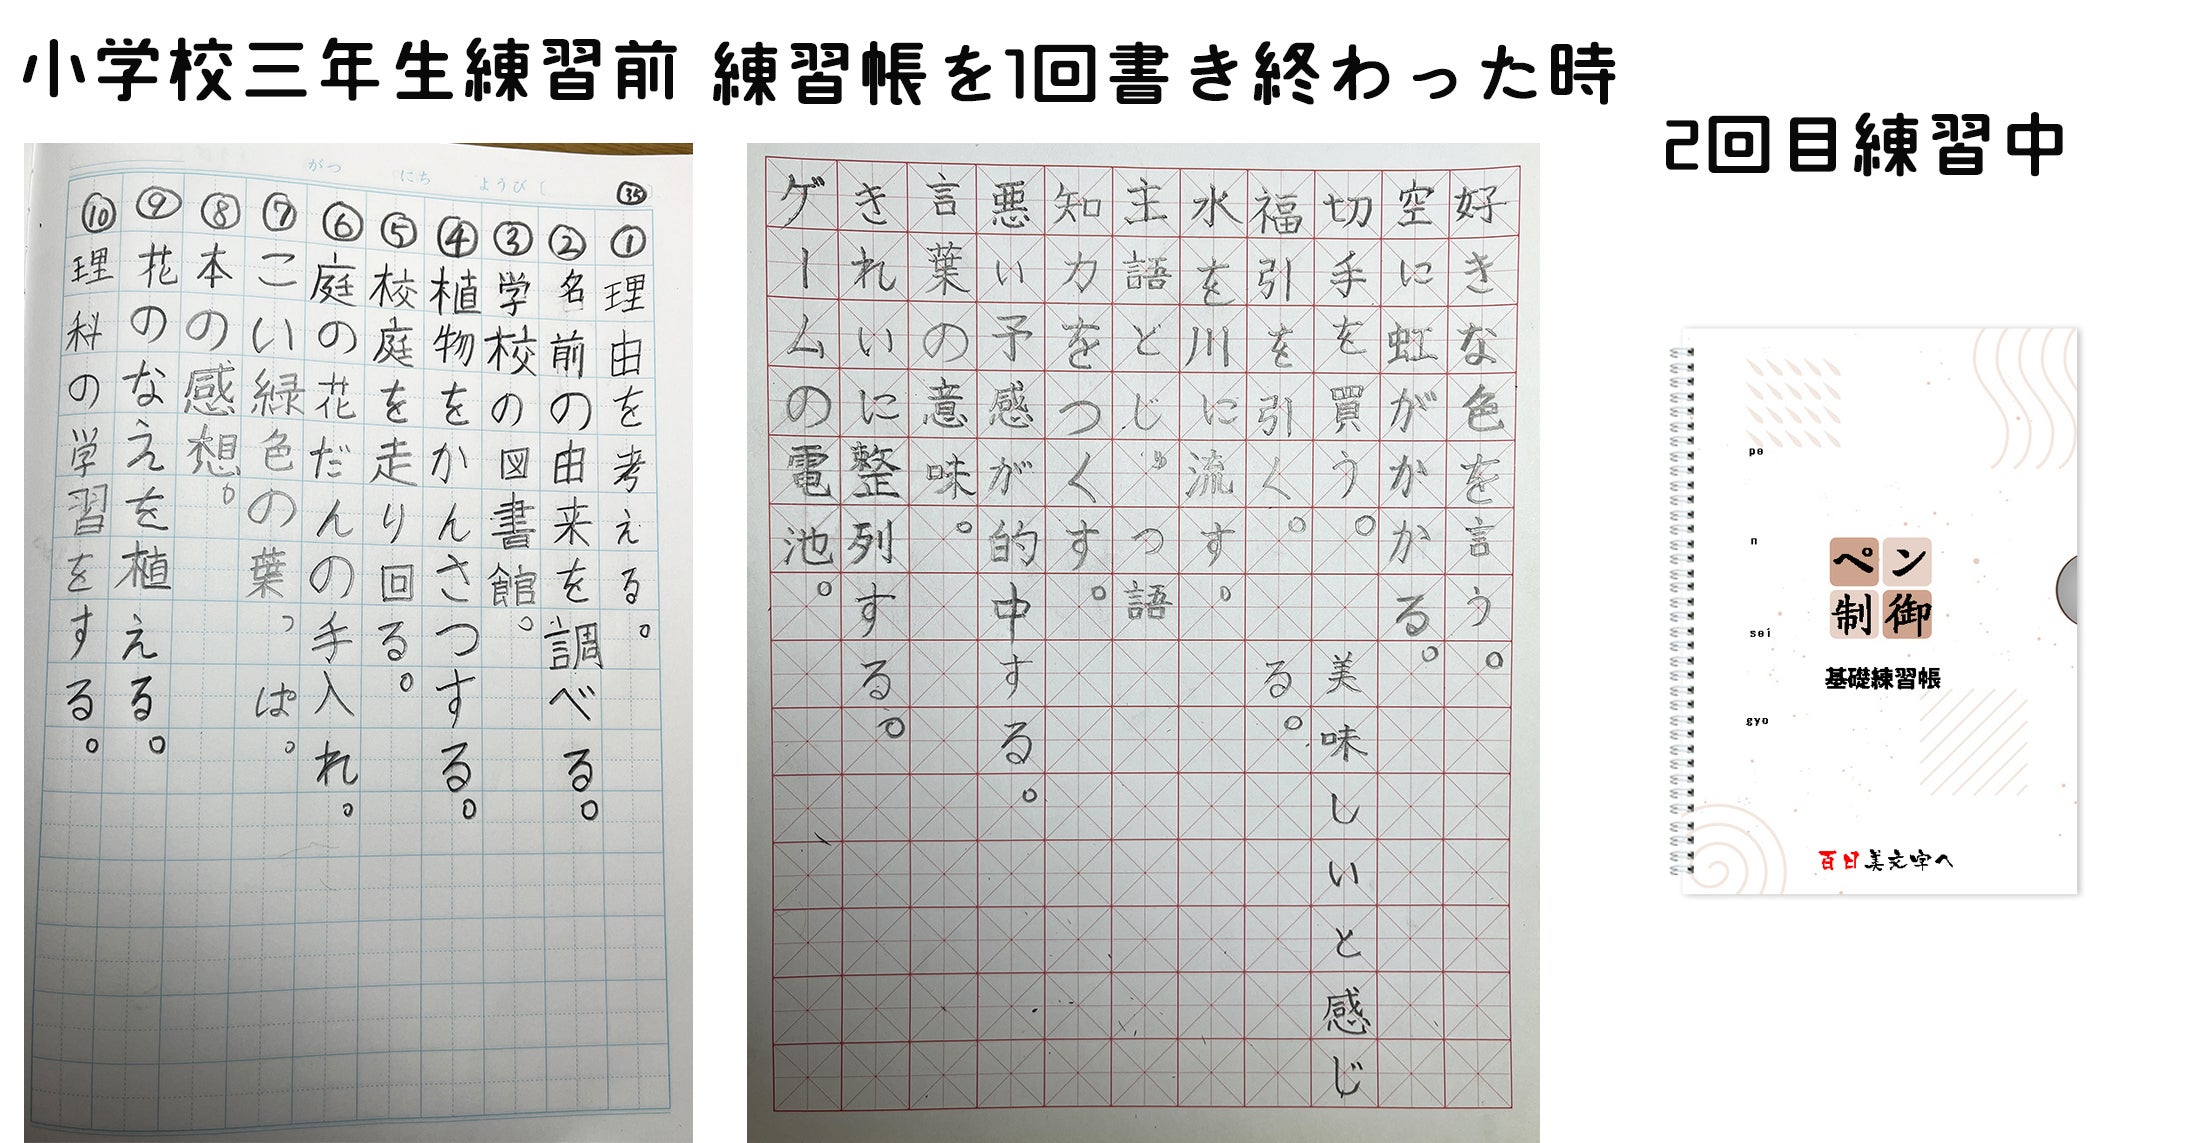 小学校三年生練習前
練習帳を1回書き終わった時
2回目練習中
がつ にち ようび
㉟
①理由を考える。
②名前の由来を調べる。
③学校の図書館。
④植物をかんさつする。
⑤校庭を走り回る。
⑥庭の花だんの手入れ。
⑦こい緑色の葉っぱ。
⑧本の感想。
⑨花のなえを植える。
⑩理科の学習をする。
好きな色を言う。
空に虹がかかる。
切手を買う。美味しいと感じ
る。
福引を引く。
水を川に流す。
主語とじゅつ語
知力をつくす。
悪い予感が的中する。
言葉の意味。
きれいに整列する。
ゲームの電池。
pe
n
sei
gyo
ペン
制御
基礎練習帳
百日美文字へ